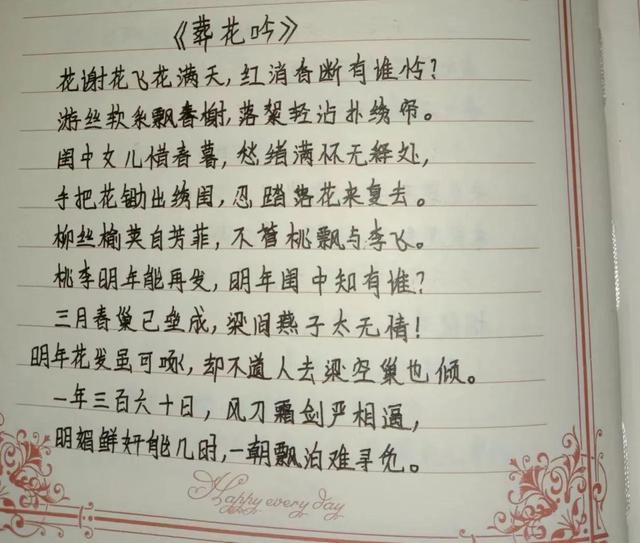 《葬花吟》
花谢花飞花满天,红消香断有谁怜?
游丝软系飘春榭,落絮轻沾扑绣帘。
闺中女儿惜春暮,愁绪满怀无释处,
手把花锄出绣闺,忍踏落花来复去。
柳丝榆荚自芳菲,不管桃飘与李飞。
桃李明年能再发,明年闺中知有谁?
三月香巢已垒成,梁间燕子太无情!
明年花发虽可啄,却不道人去梁空巢也倾。
一年三百六十日,风刀霜剑严相逼,
明媚鲜妍能几时,一朝飘泊难寻觅。
Happy every day